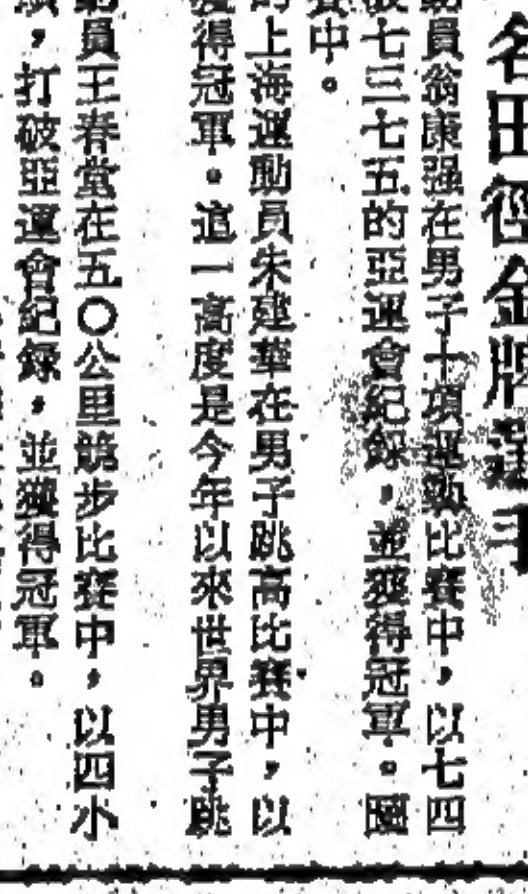 名田徑金牌選手
動員翁康强在男子十項運動比賽中，以七四
破七三七五的亞運會紀錄，並獲得冠軍。圖
賽中。
的上海運動員朱建華在男子跳高比賽中，以
獲得冠軍。這一高度是今年以來世界男子跳
動員王春堂在五〇公里競步比賽中，以四小
績，打破亞運會紀錄，並獲得冠軍。